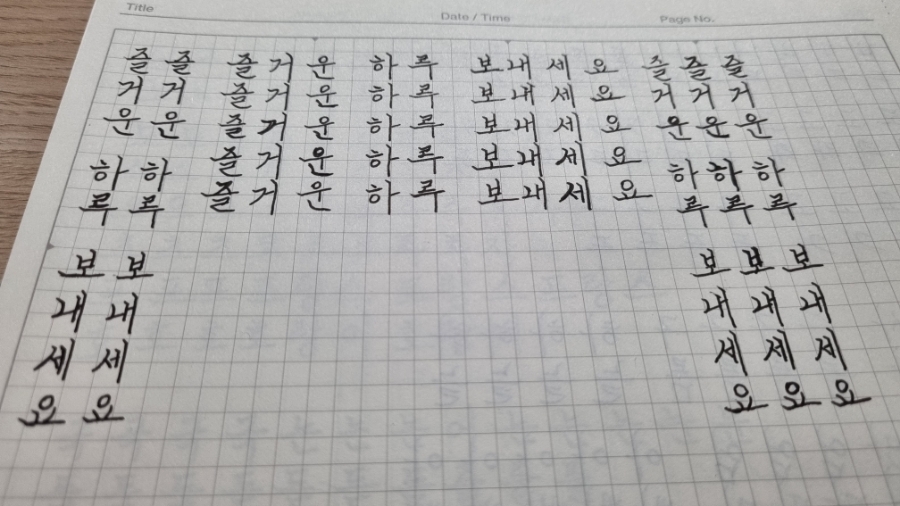 Title Date / Time Page No.
즐 즐 즐 거 운 하 루 보 내 세 요 즐 즐 즐
거 거 즐 거 운 하 루 보 내 세 요 거 거 거
운 운 즐 거 운 하 루 보 내 세 요 운 운 운
하 하 즐 거 운 하 루 보 내 세 요 하 하 하
루 루 즐 거 운 하 루 보 내 세 요 루 루 루
보 보 보 보 보
내 내 내 내 내
세 세 세 세 세
요 요 요 요 요